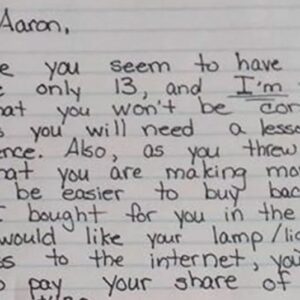 Aaron,
you seem to have
only 13, and I'm
you won't be
you will need a
Also, as you threw
you are making
be easier to buy
bought for you in the
would like your lamp
to the internet,
pay your share of